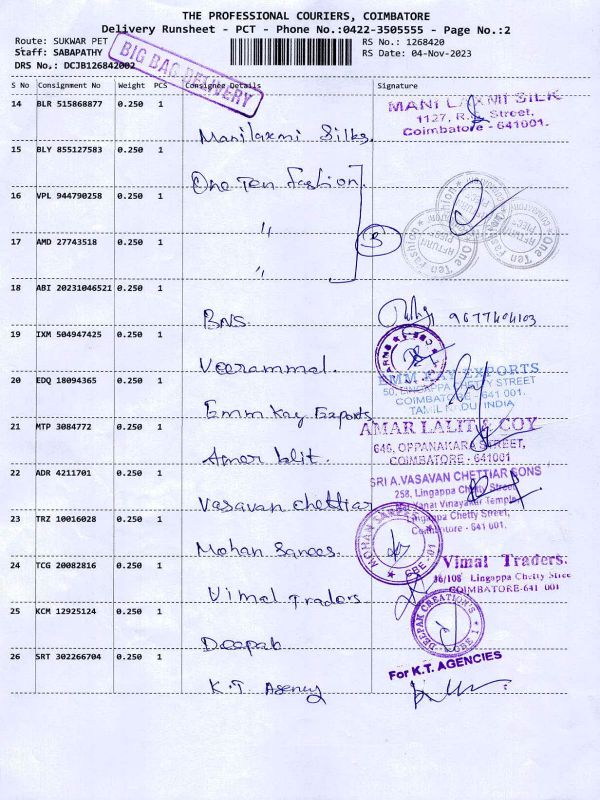 THE PROFESSIONAL COURIERS, COIMBATORE
Delivery Runsheet - PCT - Phone No.:0422-3505555 - Page No.:2
Route: SUKWAR PET
RS No.: 1268420
Staff: SABAPATHY
RS Date: 04-Nov-2023
DRS No,: DCJB126842002
BIG BAG DELIVERY
S No Consignment No Weight PCS Consignee Details Signature
14 BLR 515868877 0.250 1
Manilaxmi Silks.
MANI LAXMI SILK
1127, R. Street,
Coimbatore - 641001.
15 BLY 855127583 0.250 1
One Ten Fashion
16 VPL 944790258 0.250 1
"
3
One Ten Fashion
17 AMD 27743518 0.250 1
"
18 ABI 20231046521 0.250 1
BNS.
9677404103
19 IXM 504947425 0.250 1
Veerammal.
20 EDQ 18094365 0.250 1
Emm Kay Exports
EMM KAY EXPORTS
50, LINGAPPA CHETTY STREET
COIMBATORE - 641 001.
TAMIL NADU INDIA
21 MTP 3084772 0.250 1
Amar lalit.
AMAR LALIT & COY
646, OPPANAKARA STREET,
COIMBATORE - 641001
22 ADR 4211701 0.250 1
Vasavan Chettiar
SRI A.VASAVAN CHETTIAR SONS
258, Lingappa Chetty Street
Yanai Vinayakar Temple
Lingappa Chetty Street,
Coimbatore - 641 001.
23 TRZ 10016028 0.250 1
Mohan Sarees.
MOHAN SAREES
CBE-01
24 TCG 20082816 0.250 1
Vimal Traders
Vimal Traders.
36/108 Lingappa Chetty Stree
COIMBATORE-641 001
25 KCM 12925124 0.250 1
Deepak
DEEPAK CREATION'S
CBE 1
26 SRT 302266704 0.250 1
K.T. Agency
For K.T. AGENCIES